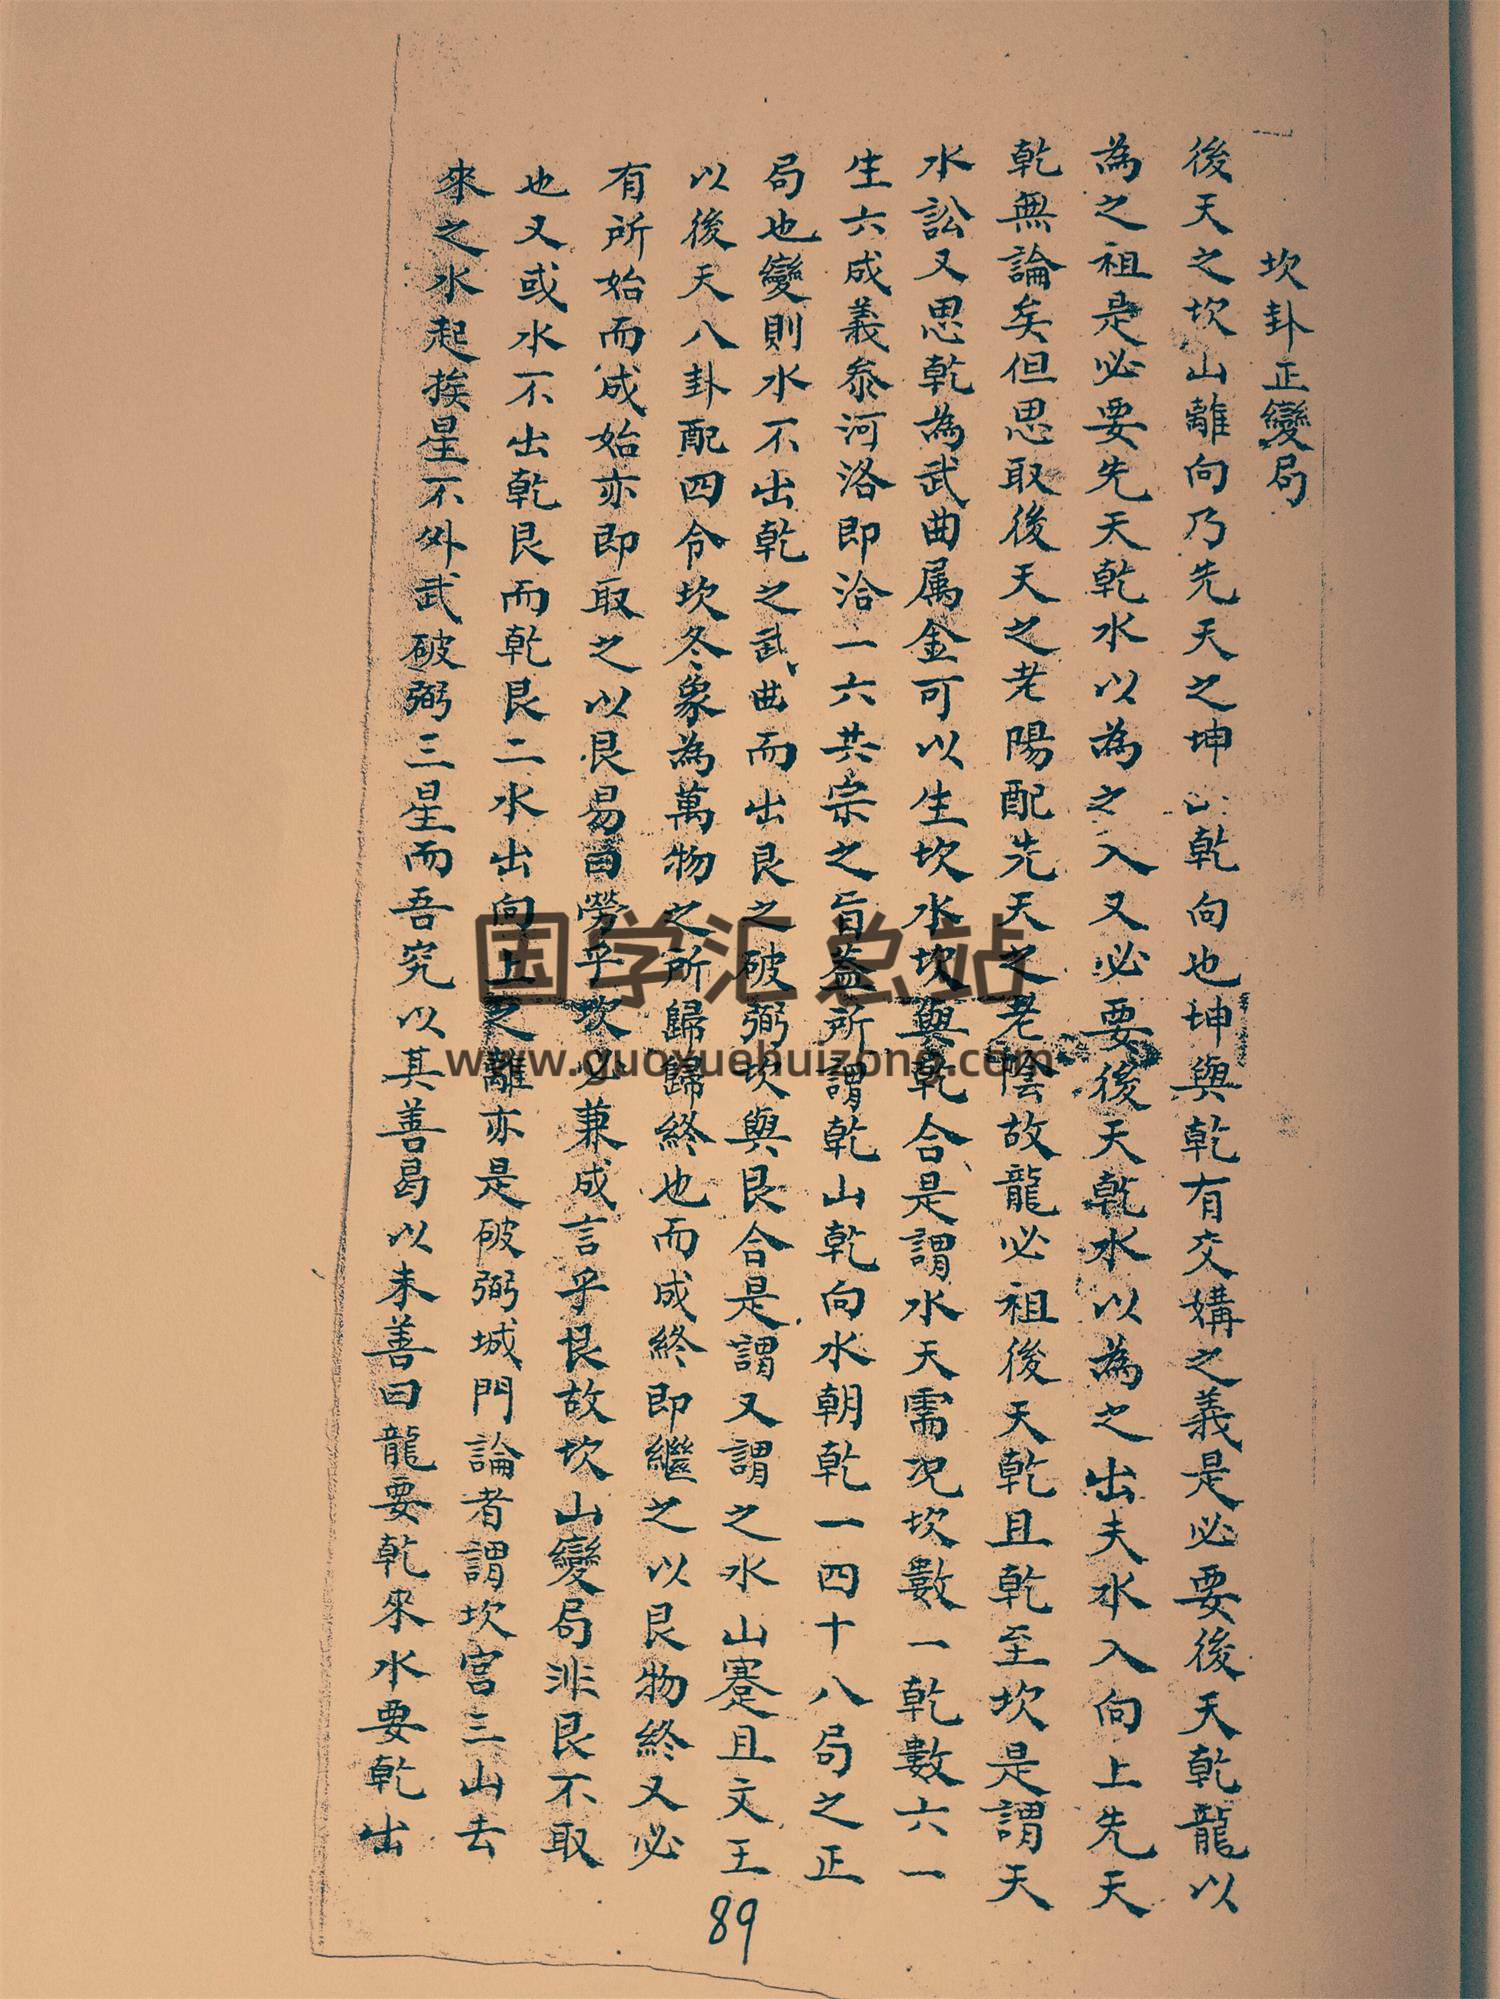 坎卦正變局
後天之坎山離向乃先天之坤山乾向也坤與乾有交媾之義是必要後天乾龍以
為之祖是必要先天乾水以為之入又必要後天乾水以為之出夫水入向上先天
乾無論矣但思取後天之老陽配先天之老陰故龍必祖後天乾且乾至坎是謂天
水訟又思乾為武曲属金可以生坎水坎與乾合是謂水天需况坎數一乾數六一
生六成義泰河洛即洽一六共宗之旨蓋所謂乾山乾向水朝乾一四十八局之正
局也變則水不出乾之武曲而出艮之破弼坎與艮合是謂又謂之水山蹇且文王
以後天八卦配四令坎冬象為萬物之所歸歸終也而成終即繼之以艮物終又必
有所始而成始亦即取之以艮易曰勞乎坎必兼成言乎艮故坎山變局非艮不取
也又或水不出乾艮而乾艮二水出向上之離亦是破弼城門論者謂坎宮三山去
來之水起挨星不外武破弼三星而吾究以其善曷以未善曰龍要乾來水要乾出
89
国学汇总站
www.guoxuehuizong.com